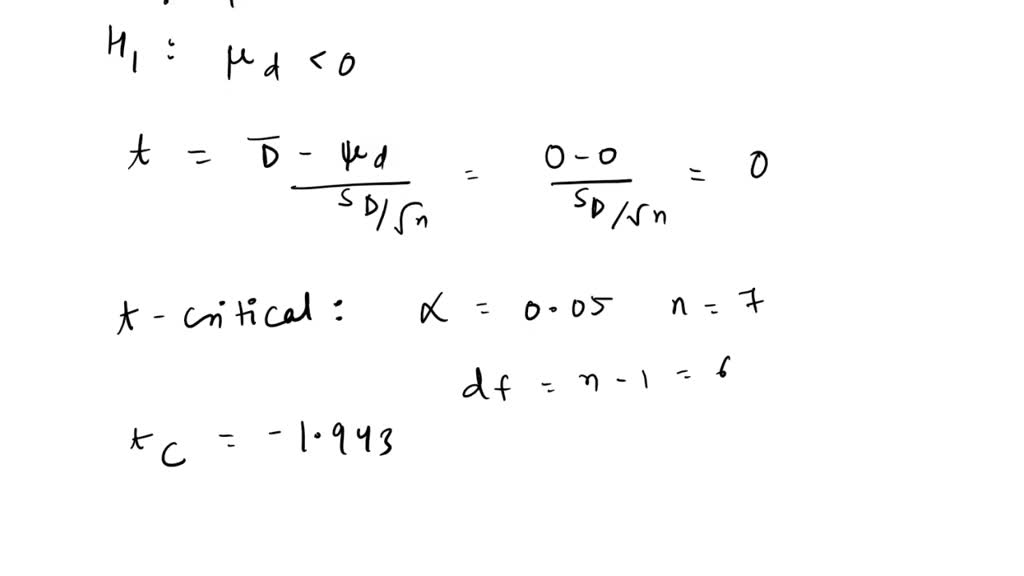 H₁ : μd < 0
t = D̄ - μd / SD/√n = 0 - 0 / SD/√n = 0
t - critical : α = 0.05 n = 7
df = n - 1 = 6
tC = -1.943